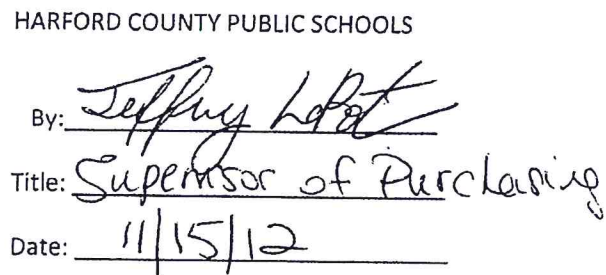 HARFORD COUNTY PUBLIC SCHOOLS
By: Jeffry LaPorta
Title: Supervisor of Purchasing
Date: 11/15/12